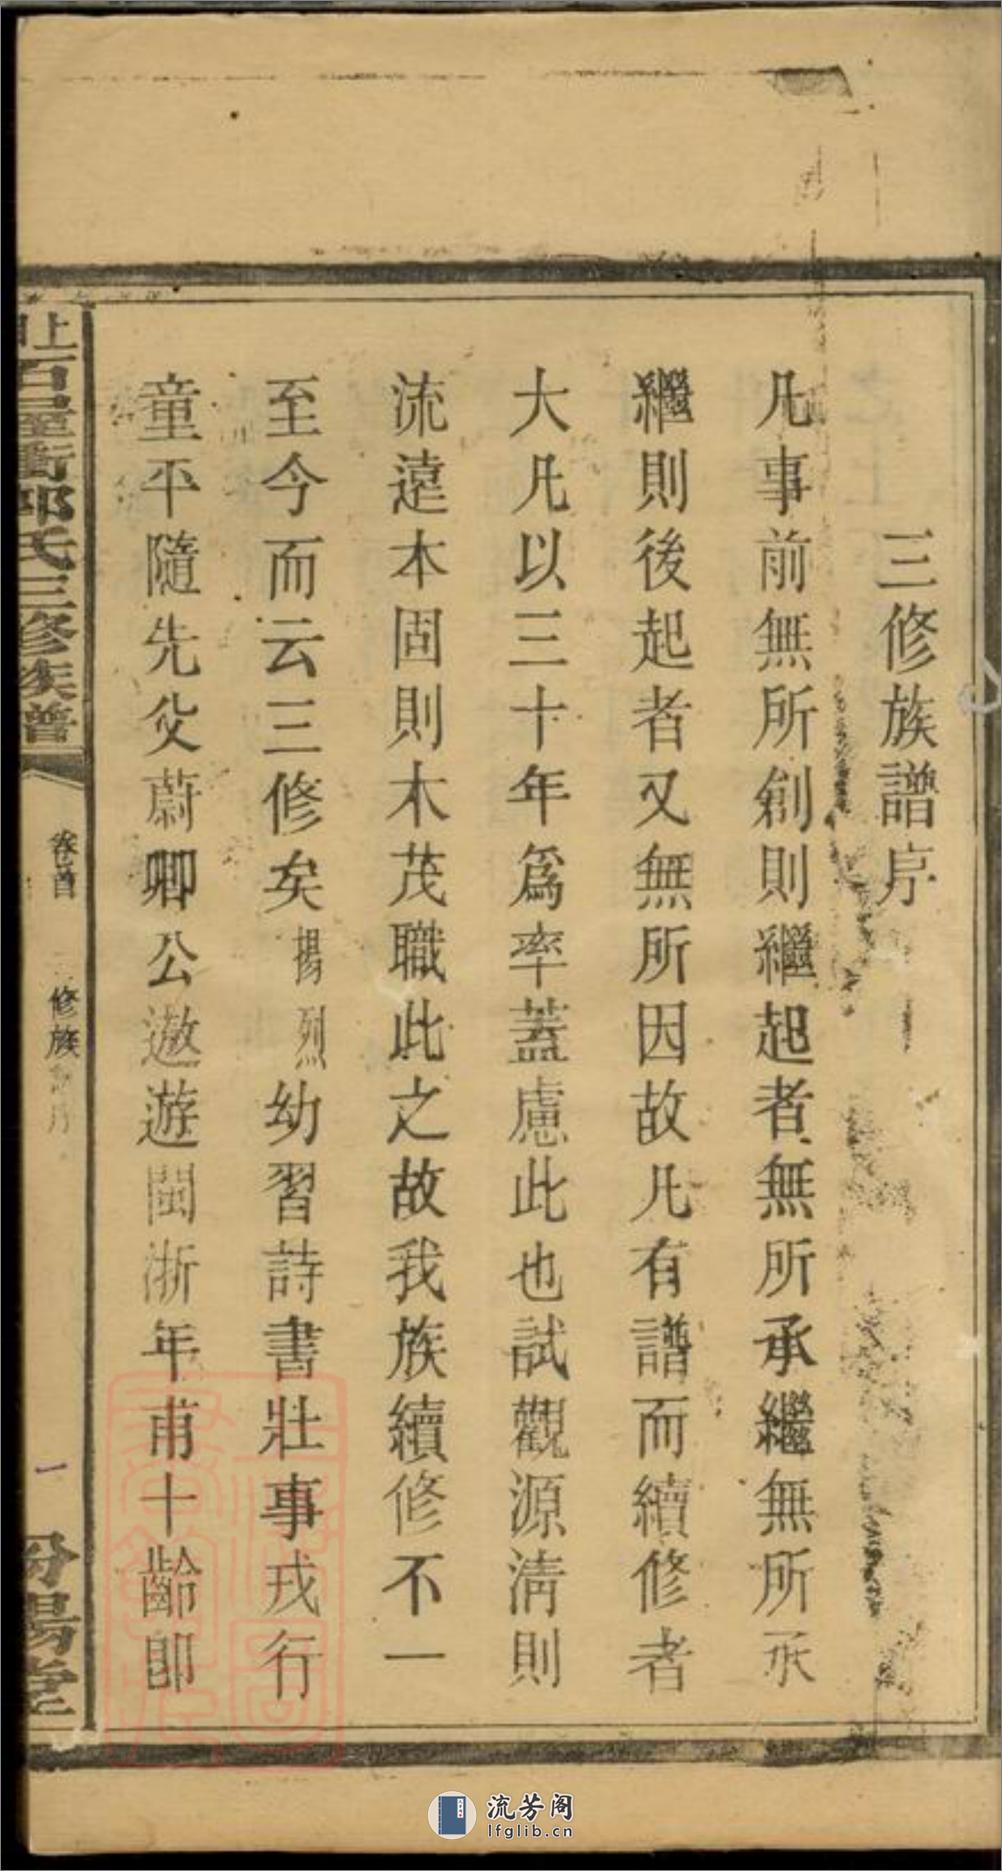 三修族譜序
凡事前無所創則繼起者無所承繼無所承
繼則後起者又無所因故凡有譜而續修者
大凡以三十年爲率蓋慮此也試觀源淸則
流遠本固則木茂職此之故我族續修不一
至今而云三修矣揚烈幼習詩書壯事戎行
童平隨先父蔚卿公遨遊閩浙年甫十齡卽
上石 衝郭氏三修族譜
卷首
修族譜序
一
汾陽堂
流芳阁
lfglib.cn